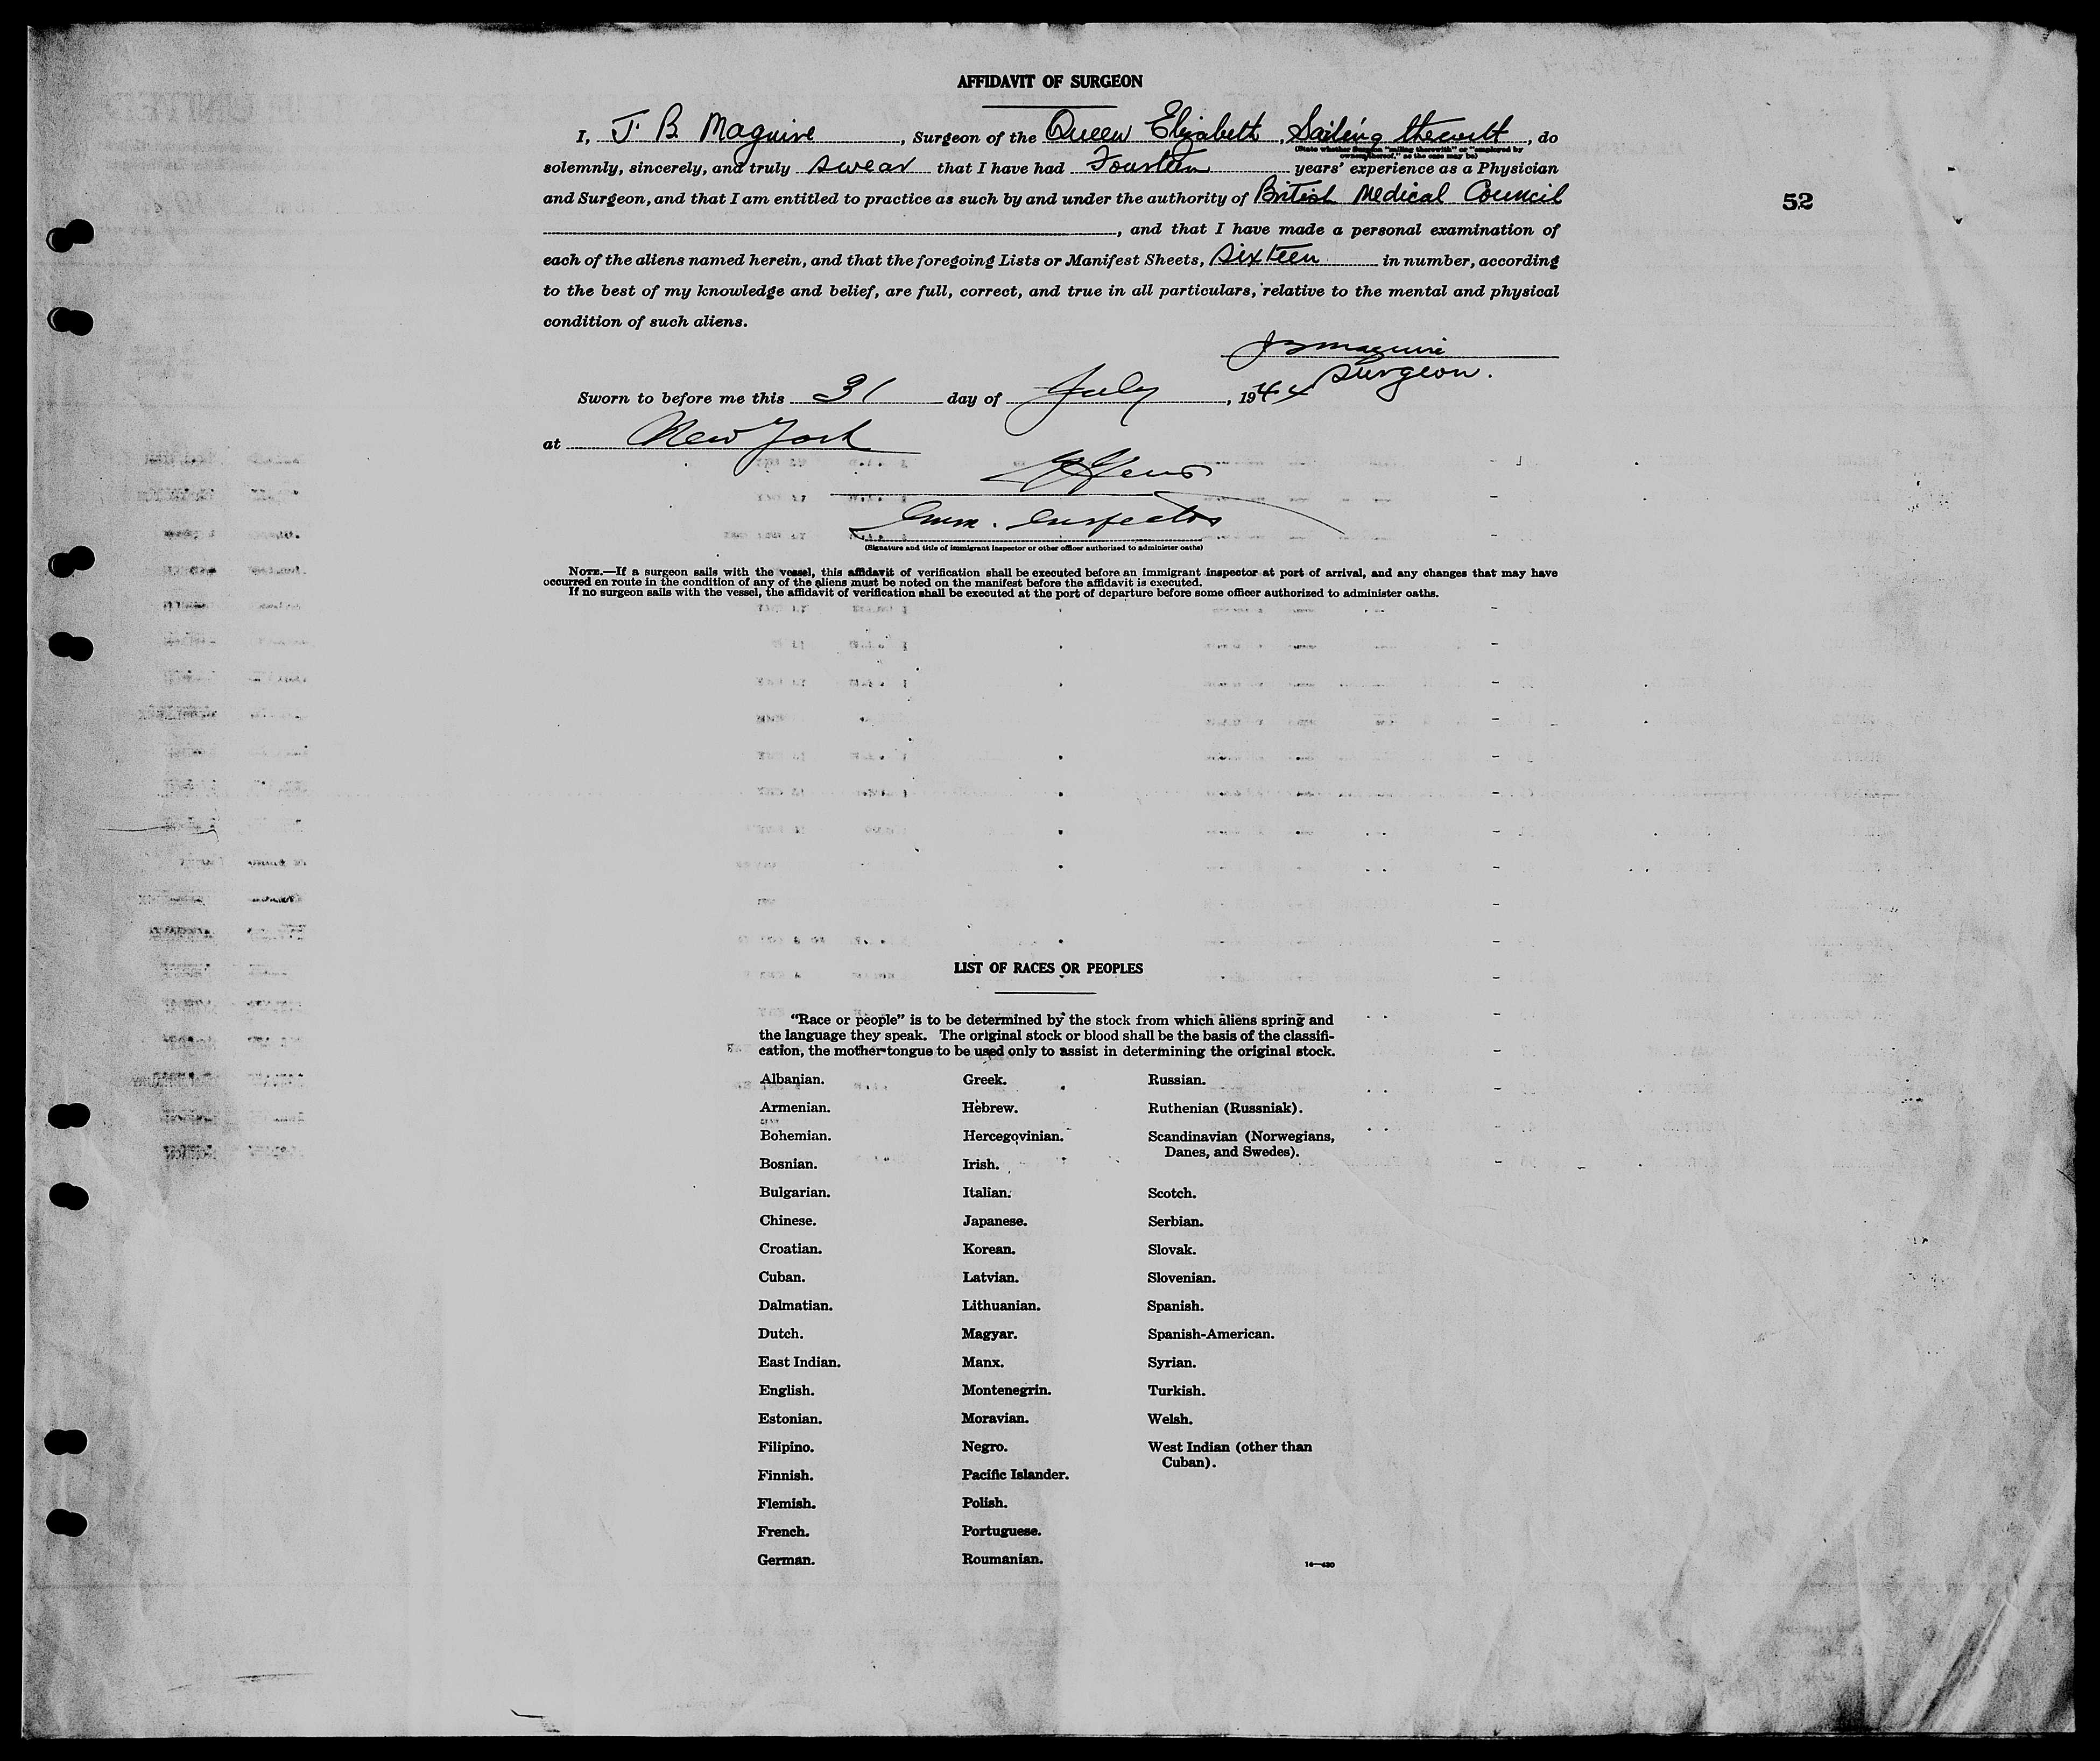 AFFIDAVIT OF SURGEON
I, J. B. Maguire, Surgeon of the Queen Elizabeth, Sailing therewith, do
(State whether Surgeon "sailing therewith" or "employed by
owners thereof," as the case may be)
solemnly, sincerely, and truly swear that I have had Fourteen years' experience as a Physician
and Surgeon, and that I am entitled to practice as such by and under the authority of British Medical Council
52
, and that I have made a personal examination of
each of the aliens named herein, and that the foregoing Lists or Manifest Sheets, sixteen in number, according
to the best of my knowledge and belief, are full, correct, and true in all particulars, relative to the mental and physical
condition of such aliens.
JB Maguire
Surgeon.
Sworn to before me this 31 day of July, 1944
at New York
Imm. Inspector
(Signature and title of immigrant inspector or other officer authorized to administer oaths)
NOTE.—If a surgeon sails with the vessel, this affidavit of verification shall be executed before an immigrant inspector at port of arrival, and any changes that may have
occurred en route in the condition of any of the aliens must be noted on the manifest before the affidavit is executed.
If no surgeon sails with the vessel, the affidavit of verification shall be executed at the port of departure before some officer authorized to administer oaths.
LIST OF RACES OR PEOPLES
"Race or people" is to be determined by the stock from which aliens spring and
the language they speak. The original stock or blood shall be the basis of the classifi-
cation, the mother tongue to be used only to assist in determining the original stock.
Albanian.
Armenian.
Bohemian.
Bosnian.
Bulgarian.
Chinese.
Croatian.
Cuban.
Dalmatian.
Dutch.
East Indian.
English.
Estonian.
Filipino.
Finnish.
Flemish.
French.
German.
Greek.
Hebrew.
Hercegovinian.
Irish.
Italian.
Japanese.
Korean.
Latvian.
Lithuanian.
Magyar.
Manx.
Montenegrin.
Moravian.
Negro.
Pacific Islander.
Polish.
Portuguese.
Roumanian.
Russian.
Ruthenian (Russniak).
Scandinavian (Norwegians,
Danes, and Swedes).
Scotch.
Serbian.
Slovak.
Slovenian.
Spanish.
Spanish-American.
Syrian.
Turkish.
Welsh.
West Indian (other than
Cuban).